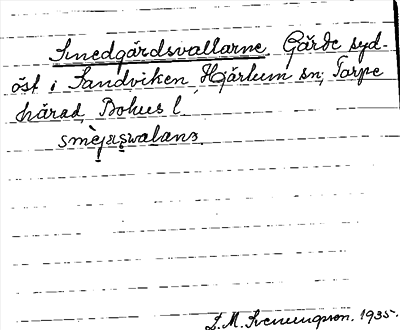 Smedgårdsvallarne, Gärde syd-
öst i Sandviken, Hjärtum sn, Torpe
härad, Bohus l.
smèjaṣwalanɜ
D. M. Svenungsson. 1935.